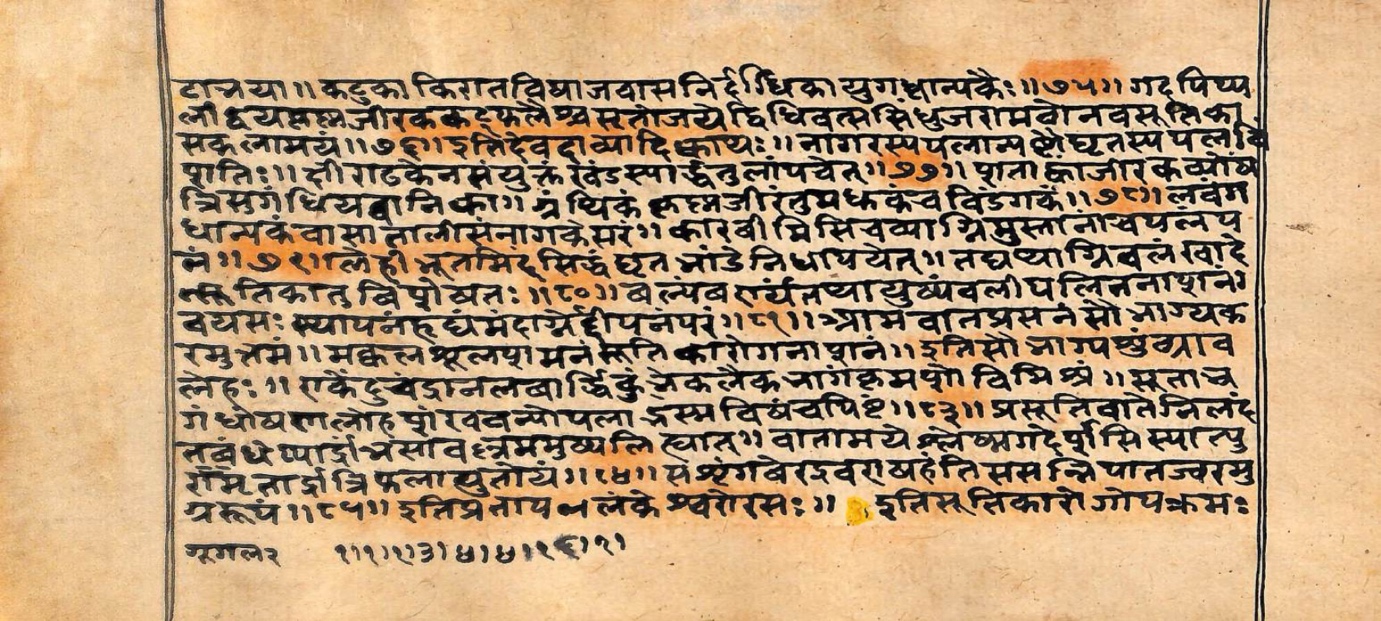 टात्रया॥ कटुका किरातविषाजवासनिर्दिग्धिकायुगधान्यकैः॥७५॥ गदपिप्प
लीद्वयकृष्णजीरककट्फलैश्च सूतांजयेद्विधिवत्ससिंधुजरामवौनवसूतिका
सकलामयं॥७६॥ इतिदेवदार्व्यादिक्वाथः॥ नागरस्यपलान्यष्टौघृतस्यपल
क्षीराढकेनसंयुक्तंखंडस्यार्द्धतुलांपचेत्॥७७॥ जीरकव्योष
त्रिसुगंधियवानिका॥ ग्रंथिकं कृष्णजीरंतु विडंगकं॥७८॥ लवंग
धान्यकंवासातालीसंनागकेसरं॥ कारवीमिसिचव्याग्निमुस्तानांचपलंप
लं॥७९॥ लेहीभूतमिदंसिद्धंघृतभांडेनिधापयेत्॥ तद्यथाग्निबलंखादे
त्सूतिकातुविशेषतः॥८०॥ बल्यंवर्ण्यंतथायुष्यंवलीपलितनाशनं
वयसःस्थापनंहृद्यंमंदाग्नेर्द्दीपनंपरं॥८१॥ आमवातप्रसनंसौभाग्यक
रमुत्तमं॥ मक्कलशूलशमनंसूतिकारोगनाशनं॥ इतिसौभाग्यशुंठ्याव
लेहः॥ एकेंदुचंद्रानलवार्द्धि कलैकभागंक्रमशोविमिश्रं॥ सूताभ्र
गंधोषणलोहशंखवन्योपलाभस्मविषंचपिष्टं॥८३॥ प्रसूतिवातेनिलदं
तबंधे लिह्यात्॥ वातामयेश्लेष्मगदेर्शसिस्यात्पु
रामृतार्द्रात्रिफलायुतोयं॥८४॥ सशृंगवेर हंतिससन्निपातज्वरमु
ग्ररूपं॥८५॥ इतिप्रतापलंकेश्वरोरसः॥ इतिसूतिकारोगोपक्रमः
गूगल२ १।१।१।३।४।४।१६।१।